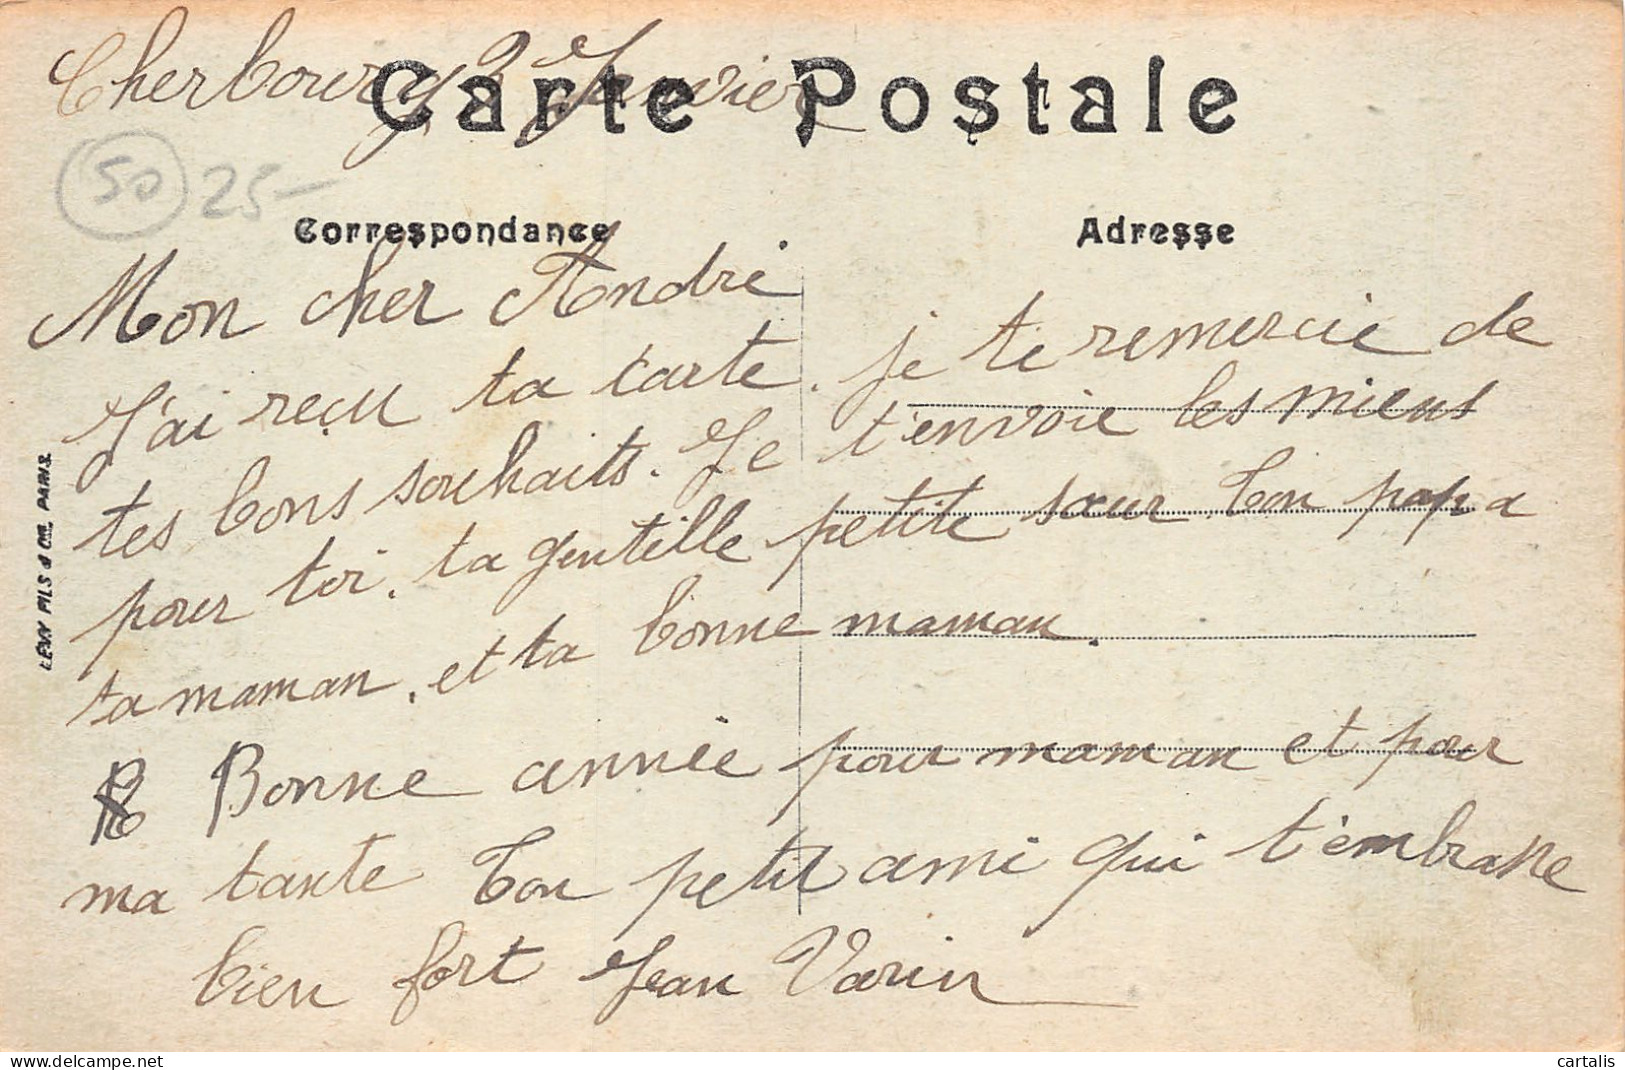 Cherbourg 3 Janvier
Carte Postale
50 25-
Correspondance
Adresse
Mon cher André
J'ai reçu ta carte. je te remercie de
tes bons souhaits. Je t'envoie les miens
pour toi. ta gentille petite sœur ton papa
ta maman. et ta bonne maman.
Bonne année pour maman et pour
ma tante Ton petit ami qui t'embrasse
bien fort Jean Varin
LEVY FILS & Cie. PARIS.
cartalis